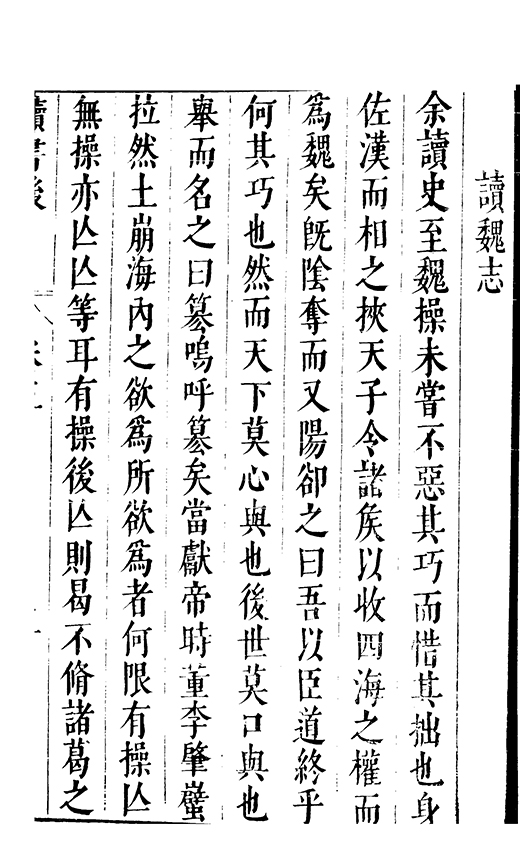 讀魏志
余讀史至魏操未嘗不惡其巧而惜其拙也身
佐漢而相之挾天子令諸矦以收四海之權而
爲魏矣旣陰奪而又陽卻之曰吾以臣道終乎
何其巧也然而天下莫心與也後世莫口與也
舉而名之曰篡嗚呼篡矣當獻帝時董李肇釁
拉然土崩海內之欲爲所欲爲者何限有操亾
無操亦亾亾等耳有操後亾則曷不脩諸葛之
讀書後